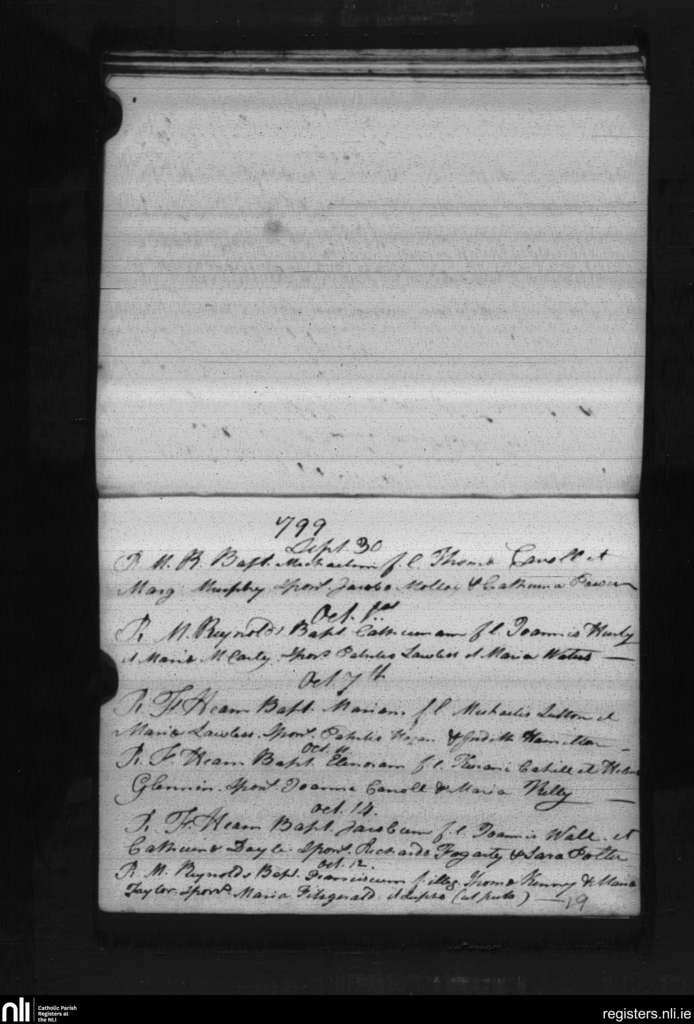 799
Sept. 30
R. M. R. Bapt. Michaelem f. l. Thoma Caroll et
Marg. Murphy Spons. Jacobo Molloy & Catherina Power
Oct. 1st
R. M. Reynolds Bapt. Catherinam f. l. Joannis Hurly
et Maria McCarty. Spons. Patritio Lawless et Maria Waters —
Oct. 7th
R. F. Hearn Bapt. Mariam f. l. Michaelis et
Maria Lawless. Spons. Patritio Hogan & Judith Hamilton —
Oct. 11
R. F. Hearn Bapt. Elenoram f. l. Cahill et
Glennin. Spons. Joanne Caroll & Maria Kelly —
Oct. 14.
R. F. Hearn Bapt. Jacobum f. l. Joannis Wall et
Catherina Doyle. Spons. Richardo Fogarty & Sara Potter
Oct. 12.
R. M. Reynolds Bapt. Franciscum f. illeg. Thoma Kenny & Maria
Taylor. Spons. Maria Fitzgerald. et supra (ut puto) — 19
nli
Catholic Parish
Registers at
the NLI
registers.nli.ie